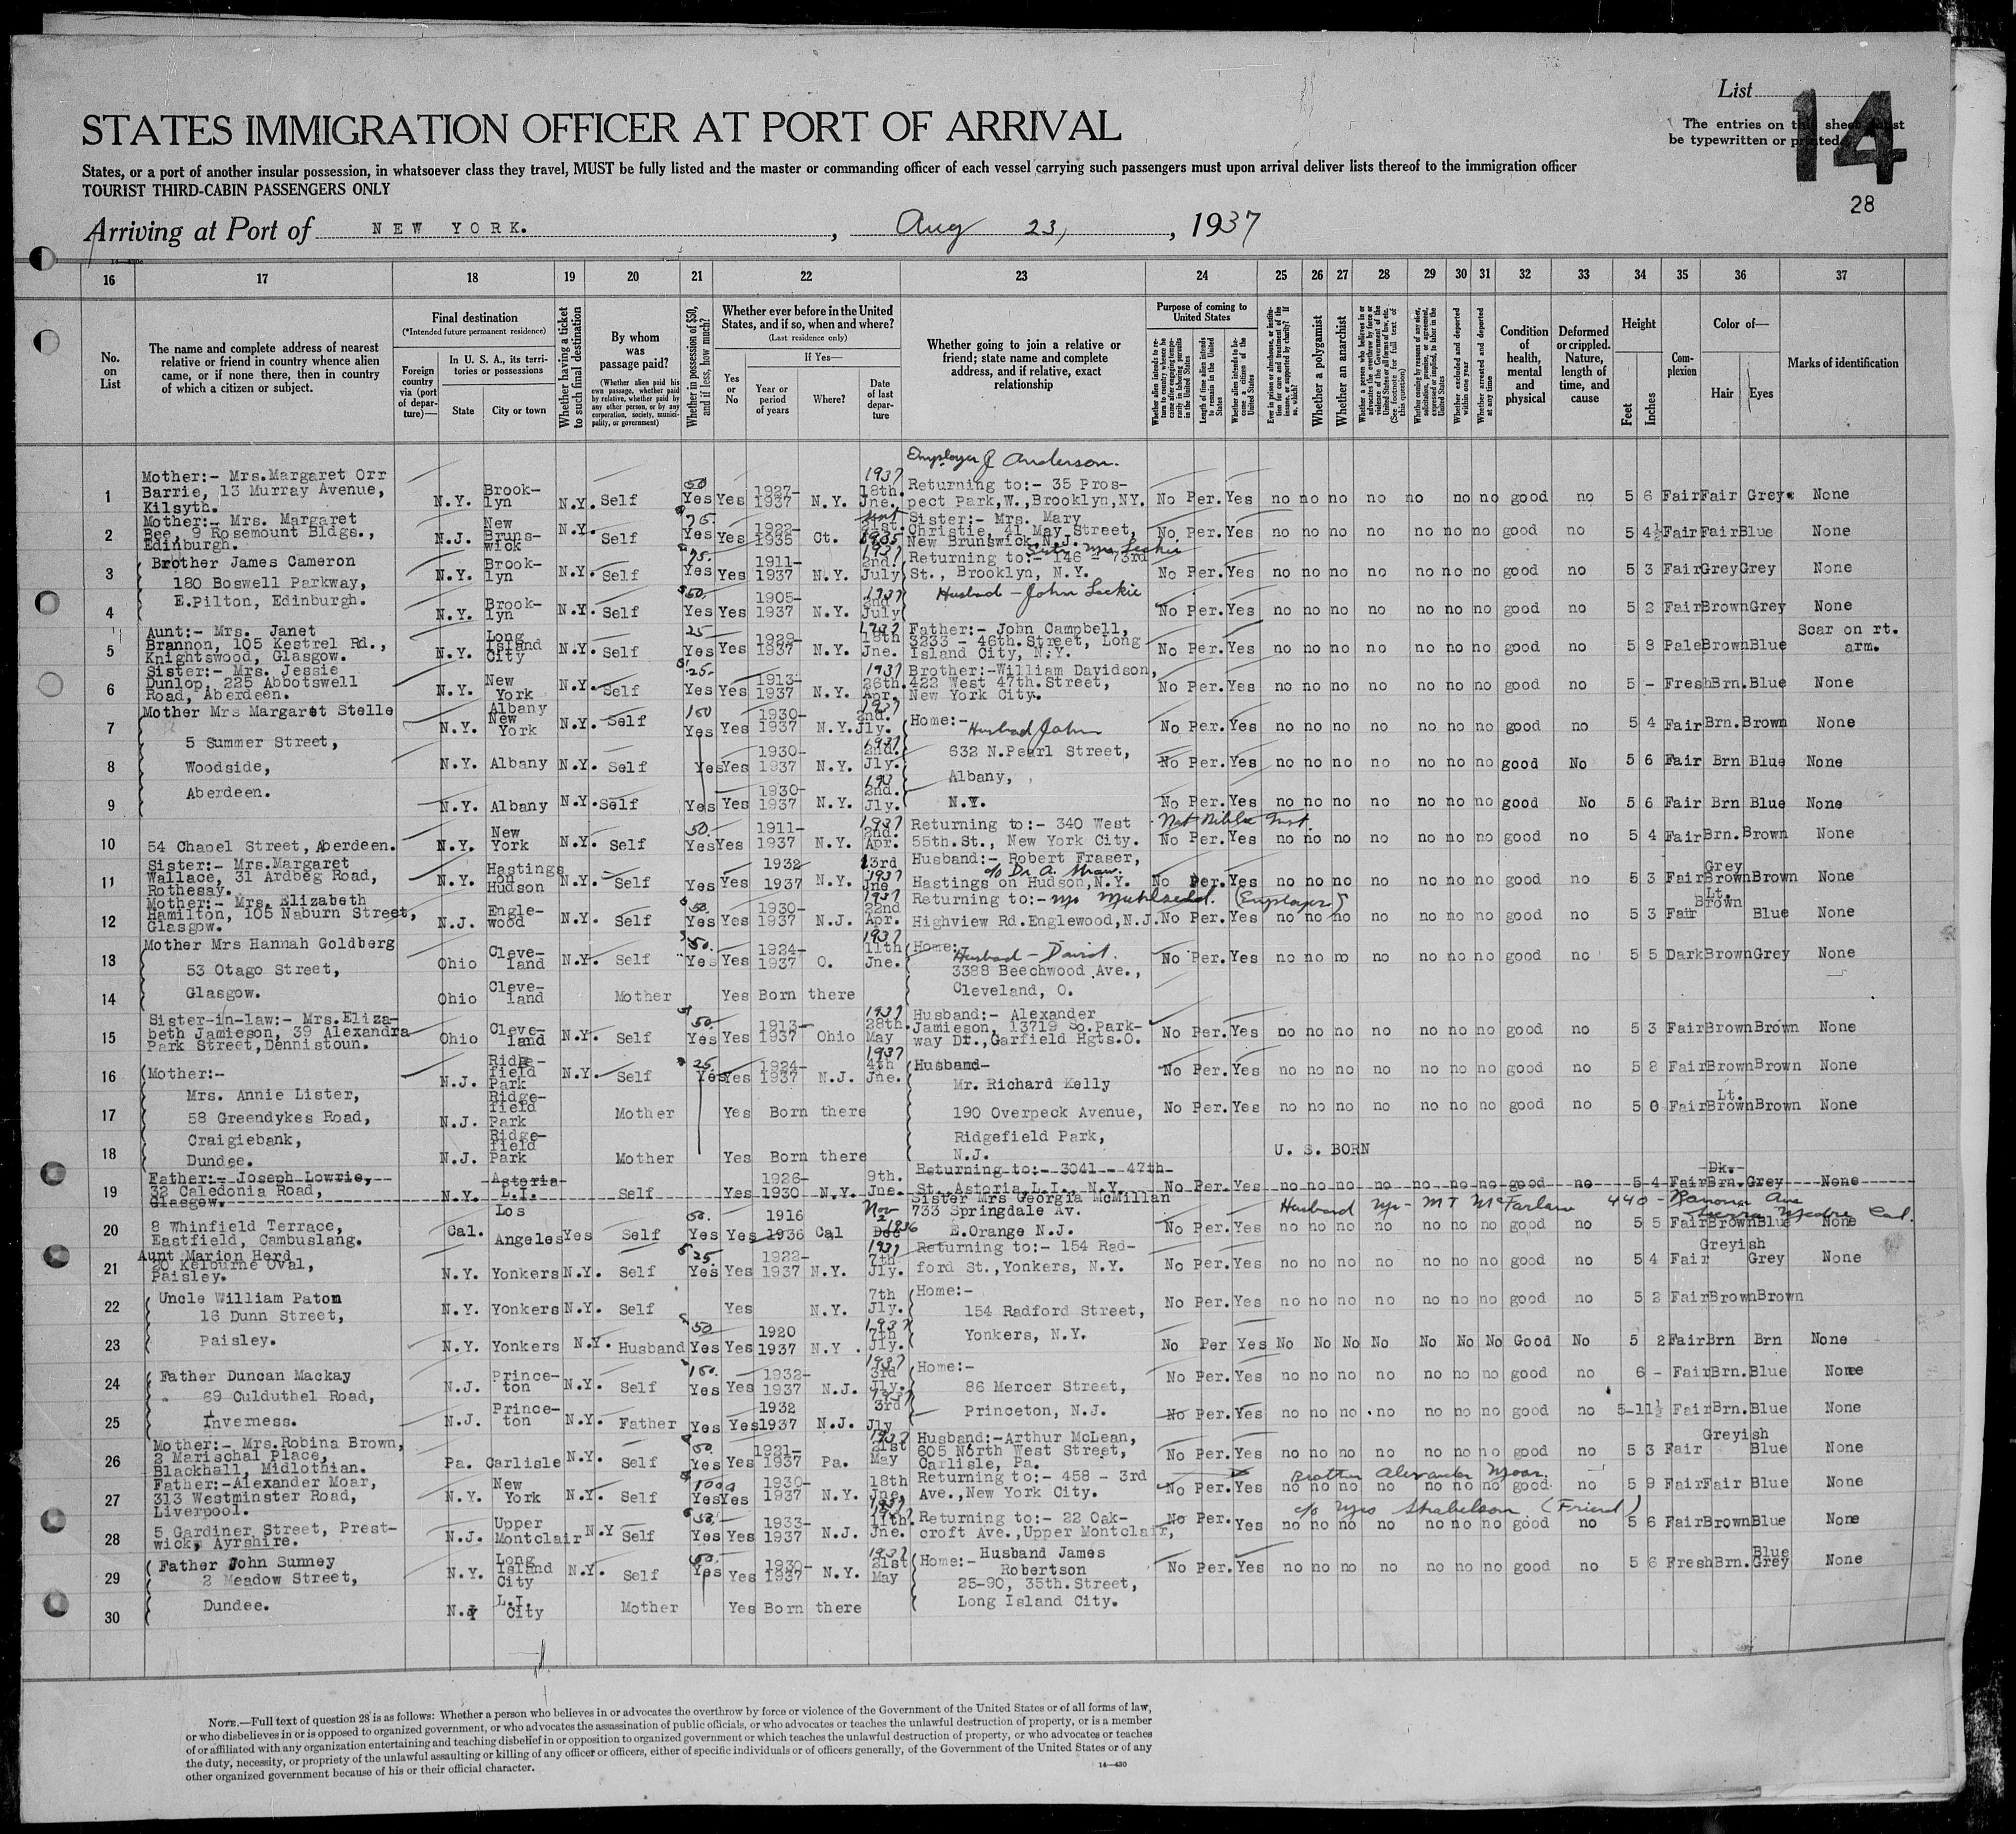 List
14
The entries on this sheet must
be typewritten or printed
28
STATES IMMIGRATION OFFICER AT PORT OF ARRIVAL
States, or a port of another insular possession, in whatsoever class they travel, MUST be fully listed and the master or commanding officer of each vessel carrying such passengers must upon arrival deliver lists thereof to the immigration officer
TOURIST THIRD-CABIN PASSENGERS ONLY
Arriving at Port of NEW YORK. , Aug 23, , 1937
16 17 18 19 20 21 22 23 24 25 26 27 28 29 30 31 32 33 34 35 36 37
No. on List
The name and complete address of nearest relative or friend in country whence alien came, or if none there, then in country of which a citizen or subject.
Final destination
(*Intended future permanent residence)
Foreign country via (port of departure)—
In U. S. A., its territories or possessions
State
City or town
Whether having a ticket to such final destination
By whom was passage paid?
(Whether alien paid his own passage, whether paid by relative, whether paid by any other person, or by any corporation, society, municipality, or government)
Whether in possession of $50, and if less, how much?
Whether ever before in the United States, and if so, when and where?
(Last residence only)
Yes or No
If Yes—
Year or period of years
Where?
Date of last departure
Whether going to join a relative or friend; state name and complete address, and if relative, exact relationship
Purpose of coming to United States
Whether alien intends to return to country whence he came after engaging temporarily in laboring pursuits in the United States
Length of time alien intends to remain in the United States
Whether alien intends to become a citizen of the United States
Ever in prison or almshouse, or institution for care and treatment of the insane, or supported by charity? If so, which?
Whether a polygamist
Whether an anarchist
Whether a person who believes in or advocates the overthrow by force or violence of the Government of the United States or all forms of law, etc. (See footnote for full text of this question)
Whether coming by reason of any offer, solicitation, promise, or agreement, expressed or implied, to labor in the United States
Whether excluded and deported within one year
Whether arrested and deported at any time
Condition of health, mental and physical
Deformed or crippled. Nature, length of time, and cause
Height
Feet
Inches
Complexion
Color of—
Hair
Eyes
Marks of identification
Employer J Anderson.
1 Mother:- Mrs.Margaret Orr Barrie, 13 Murray Avenue, Kilsyth. N.Y. Brooklyn N.Y. Self 50 Yes Yes 1927-1937 N.Y. 1937 18th. Jne. Returning to:- 35 Prospect Park,W.,Brooklyn,NY. No Per. Yes no no no no no no no good no 5 6 Fair Fair Grey. None
2 Mother:- Mrs. Margaret Bee, 9 Rosemount Bldgs., Edinburgh. N.J. New Brunswick N.Y. Self 75. Yes Yes 1922-1935 Ct. 21st. 1935 Sister:- Mrs. Mary Christie, 41 May Street, New Brunswick,N.J. No Per. Yes no no no no no no no good no 5 4½ Fair Fair Blue None
3 Brother James Cameron 180 Boswell Parkway, E.Pilton, Edinburgh. N.Y. Brooklyn N.Y. Self 75. Yes Yes 1911-1937 N.Y. 1937 2nd. July Returning to:- 146 - 73rd St., Brooklyn, N.Y. No Per. Yes no no no no no no no good no 5 3 Fair Grey Grey None
4 N.Y. Brooklyn N.Y. Self 50. Yes Yes 1905-1937 N.Y. 1937 2nd July Husbad - John Leckie No Per. Yes no no no no no no no good no 5 2 Fair Brown Grey None
5 Aunt:- Mrs. Janet Brannon, 105 Kestrel Rd., Knightswood, Glasgow. N.Y. Long Island City N.Y. Self 25 Yes Yes 1928-1937 N.Y. 1937 18th Jne. Father:- John Campbell, 3233 - 46th.Street, Long Island City, N.Y. No Per. Yes no no no no no no no good no 5 8 Pale Brown Blue Scar on rt. arm.
6 Sister:- Mrs. Jessie Dunlop, 225 Abbotswell Road, Aberdeen. N.Y. New York N.Y. Self 25. Yes Yes 1913-1937 N.Y. 1937 26th. Apr. Brother:-William Davidson, 422 West 47th.Street, New York City. No Per. Yes no no no no no no no good no 5 - Fresh Brn. Blue None
7 Mother Mrs Margaret Stelle N.Y. Albany New York N.Y. Self 150 Yes Yes 1930-1937 N.Y. 1937 2nd. Jly. Home:- Husbad John No Per. Yes no no no no no no no good no 5 4 Fair Brn. Brown None
8 5 Summer Street, Woodside, N.Y. Albany N.Y. Self Yes Yes 1930-1937 N.Y. 1937 2nd. Jly. 632 N.Pearl Street, No Per. Yes no no no no no no no good No 5 6 Fair Brn Blue None
9 Aberdeen. N.Y. Albany N.Y. Self Yes Yes 1930-1937 N.Y. 193 2nd. Jly. Albany, N.Y. No Per. Yes no no no no no no no good No 5 6 Fair Brn Blue None
10 54 Chapel Street, Aberdeen. N.Y. New York N.Y. Self 50. Yes Yes 1911-1937 N.Y. 1937 2nd. Apr. Returning to:- 340 West 55th.St., New York City. No Per. Yes no no no no no no no good no 5 4 Fair Brn. Brown None
11 Sister:- Mrs.Margaret Wallace, 31 Ardbeg Road, Rothesay. N.Y. Hastings on Hudson N.Y. Self Yes Yes 1932 1937 N.Y. 3rd 1937 Jne Husband:- Robert Fraser, c/o Dr. A. Shaw. Hastings on Hudson,N.Y. No Per. Yes no no no no no no no good no 5 3 Fair Grey Brown Brown None
12 Mother:- Mrs. Elizabeth Hamilton, 105 Naburn Street, Glasgow. N.J. Englewood N.Y. Self 50. Yes Yes 1930-1937 N.J. 1937 22nd Apr. Returning to:- (Employer) Highview Rd.Englewood,N.J. No Per. Yes no no no no no no no good no 5 3 Fair Lt. Brown Blue None
13 Mother Mrs Hannah Goldberg 53 Otago Street, Ohio Cleveland N.Y. Self 50. Yes Yes 1924-1937 O. 1937 11th Jne. Home: Husbad - David. 3388 Beechwood Ave., No Per. Yes no no no no no no no good no 5 5 Dark Brown Grey None
14 Glasgow. Ohio Cleveland Mother Yes Born there Cleveland, O.
15 Sister-in-law:- Mrs.Elizabeth Jamieson, 39 Alexandra Park Street,Dennistoun. Ohio Cleveland N.Y. Self 50. Yes Yes 1913-1937 Ohio 1937 28th. May Husband:- Alexander Jamieson, 13719 So.Parkway Dr.,Garfield Hgts.O. No Per. Yes no no no no no no no good no 5 3 Fair Brown Brown None
16 Mother:- N.J. Ridgefield Park N.Y Self 25. Yes Yes 1924-1937 N.J. 1937 4th Jne. Husband- Mr. Richard Kelly No Per. Yes no no no no no no no good no 5 8 Fair Brown Brown None
17 Mrs. Annie Lister, 58 Greendykes Road, N.J. Ridgefield Park Mother Yes Born there 190 Overpeck Avenue, No Per. Yes no no no no no no no good no 5 0 Fair Lt. Brown Brown None
18 Craigiebank, Dundee. N.J. Ridgefield Park Mother Yes Born there Ridgefield Park, N.J. U. S. BORN
19 Father:- Joseph Lowrie, 32 Caledonia Road, Glasgow. N.Y. Astoria L.I. Self Yes 1926-1930 N.Y. 9th. Jne. Returning to:- 3041 - 47th St. Astoria L.I., N.Y. No Per. Yes no no no no no no no good no 5 4 Fair Dk. Brn. Grey None
Husband Mr - M T McFarlane 440 - Ramona Ave Sierra Madre Cal.
20 8 Whinfield Terrace, Eastfield, Cambuslang. Cal. Los Angeles Yes Self 50. Yes Yes 1916 1936 Cal Nov 2 1936 Sister Mrs Georgia McMillan 733 Springdale Av. E.Orange N.J. No Per. Yes no no no no no no no good no 5 5 Fair Brown Blue None
21 Aunt Marion Herd 20 Kelburne Oval, Paisley. N.Y. Yonkers N.Y. Self 25. Yes Yes 1922-1937 N.Y. 1937 7th Jly. Returning to:- 154 Radford St.,Yonkers, N.Y. No Per. Yes no no no no no no no good no 5 4 Fair Greyish Grey None
22 Uncle William Paton 16 Dunn Street, N.Y. Yonkers N.Y. Self Yes N.Y. 7th Jly. Home:- 154 Radford Street, No Per. Yes no no no no no no no good no 5 2 Fair Brown Brown
23 Paisley. N.Y. Yonkers N.Y. Husband 50 Yes Yes 1920 1937 N.Y. 1937 7th Jly. Yonkers, N.Y. No Per Yes No No No No No No No Good No 5 2 Fair Brn Brn None
24 Father Duncan Mackay 69 Culduthel Road, N.J. Princeton N.Y. Self 150. Yes Yes 1932-1937 N.J. 1937 3rd Jly. Home:- 86 Mercer Street, No Per. Yes no no no no no no no good no 6 - Fair Brn. Blue None
25 Inverness. N.J. Princeton N.Y. Father Yes Yes 1932 1937 N.J. 1937 3rd Jly Princeton, N.J. No Per. Yes no no no no no no no good no 5-11½ Fair Brn. Blue None
26 Mother:- Mrs.Robina Brown, 2 Marischal Place, Blackhall, Midlothian. Pa. Carlisle N.Y. Self 50. Yes Yes 1921-1937 Pa. 1937 21st May Husband:-Arthur McLean, 605 North West Street, Carlisle, Pa. No Per. Yes no no no no no no no good no 5 3 Fair Greyish Blue None
Brother Alexander Moar.
27 Father:-Alexander Moar, 313 Westminster Road, Liverpool. N.Y. New York N.Y. Self 1000 Yes Yes 1930-1937 N.Y. 18th Jne. Returning to:- 458 - 3rd Ave.,New York City. No Per. Yes no no no no no no no good no 5 9 Fair Fair Blue None
c/o Mrs (Friend)
28 5 Gardiner Street, Prestwick, Ayrshire. N.J. Upper Montclair N.Y Self 50. Yes Yes 1933-1937 N.J. 1937 11th. Jne. Returning to:- 22 Oakcroft Ave.,Upper Montclair, No Per. Yes no no no no no no no good no 5 6 Fair Brown Blue None
29 Father John Sunney 2 Meadow Street, N.Y. Long Island City N.Y. Self 50. Yes Yes 1930-1937 N.Y. 1937 21st May Home:- Husband James Robertson 25-90, 35th.Street, No Per. Yes no no no no no no no good no 5 6 Fresh Brn. Blue Grey None
30 Dundee. N.Y L.I. City Mother Yes Born there Long Island City.
NOTE.—Full text of question 28 is as follows: Whether a person who believes in or advocates the overthrow by force or violence of the Government of the United States or of all forms of law,
or who disbelieves in or is opposed to organized government, or who advocates the assassination of public officials, or who advocates or teaches the unlawful destruction of property, or is a member
of or affiliated with any organization entertaining and teaching disbelief in or opposition to organized government or which teaches the unlawful destruction of property, or who advocates or teaches
the duty, necessity, or propriety of the unlawful assaulting or killing of any officer or officers, either of specific individuals or of officers generally, of the Government of the United States or of any
other organized government because of his or their official character.
14—430